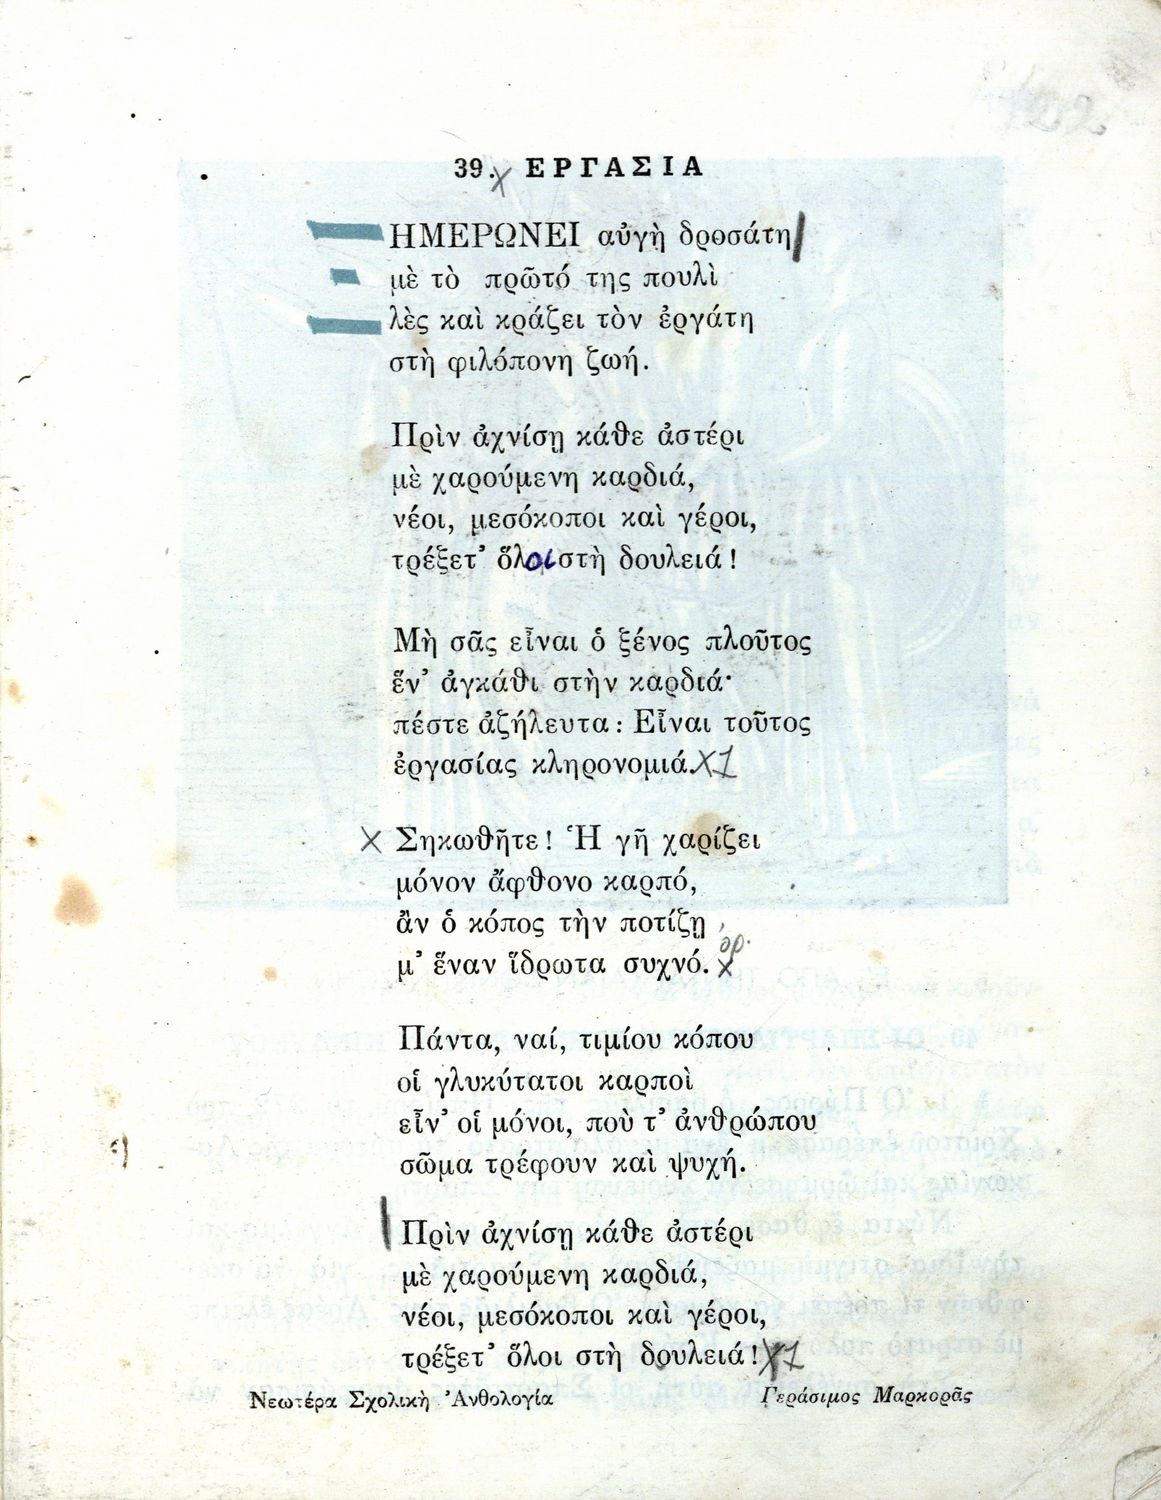 39. ΕΡΓΑΣΙΑ
ΗΜΕΡΩΝΕΙ αὐγὴ δροσάτη
μὲ τὸ πρῶτό της πουλὶ
λὲς καὶ κράζει τὸν ἐργάτη
στὴ φιλόπονη ζωή.
Πρὶν ἀχνίσῃ κάθε ἀστέρι
μὲ χαρούμενη καρδιά,
νέοι, μεσόκοποι καὶ γέροι,
τρέξετ' ὅλοι στὴ δουλειά!
Μὴ σᾶς εἶναι ὁ ξένος πλοῦτος
ἕν' ἀγκάθι στὴν καρδιά·
πέστε ἀζήλευτα: Εἶναι τοῦτος
ἐργασίας κληρονομιά. X1
X Σηκωθῆτε! Ἡ γῆ χαρίζει
μόνον ἄφθονο καρπό,
ἂν ὁ κόπος τὴν ποτίζῃ
μ' ἕναν ἵδρωτα συχνό. X
Πάντα, ναί, τιμίου κόπου
οἱ γλυκύτατοι καρποὶ
εἶν' οἱ μόνοι, ποὺ τ' ἀνθρώπου
σῶμα τρέφουν καὶ ψυχή.
Πρὶν ἀχνίσῃ κάθε ἀστέρι
μὲ χαρούμενη καρδιά,
νέοι, μεσόκοποι καὶ γέροι,
τρέξετ' ὅλοι στὴ δουλειά! X1
Νεωτέρα Σχολικὴ Ἀνθολογία Γεράσιμος Μαρκορᾶς